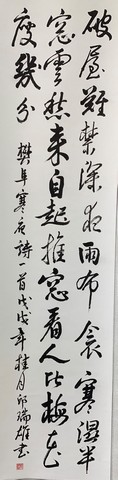 破屋難禁深夜雨布衾寒濕半
窓雲愁来自起推窓看人比梅花
瘦幾分 樊阜寒夜詩一首戊戌年桂月邱瑞雄書